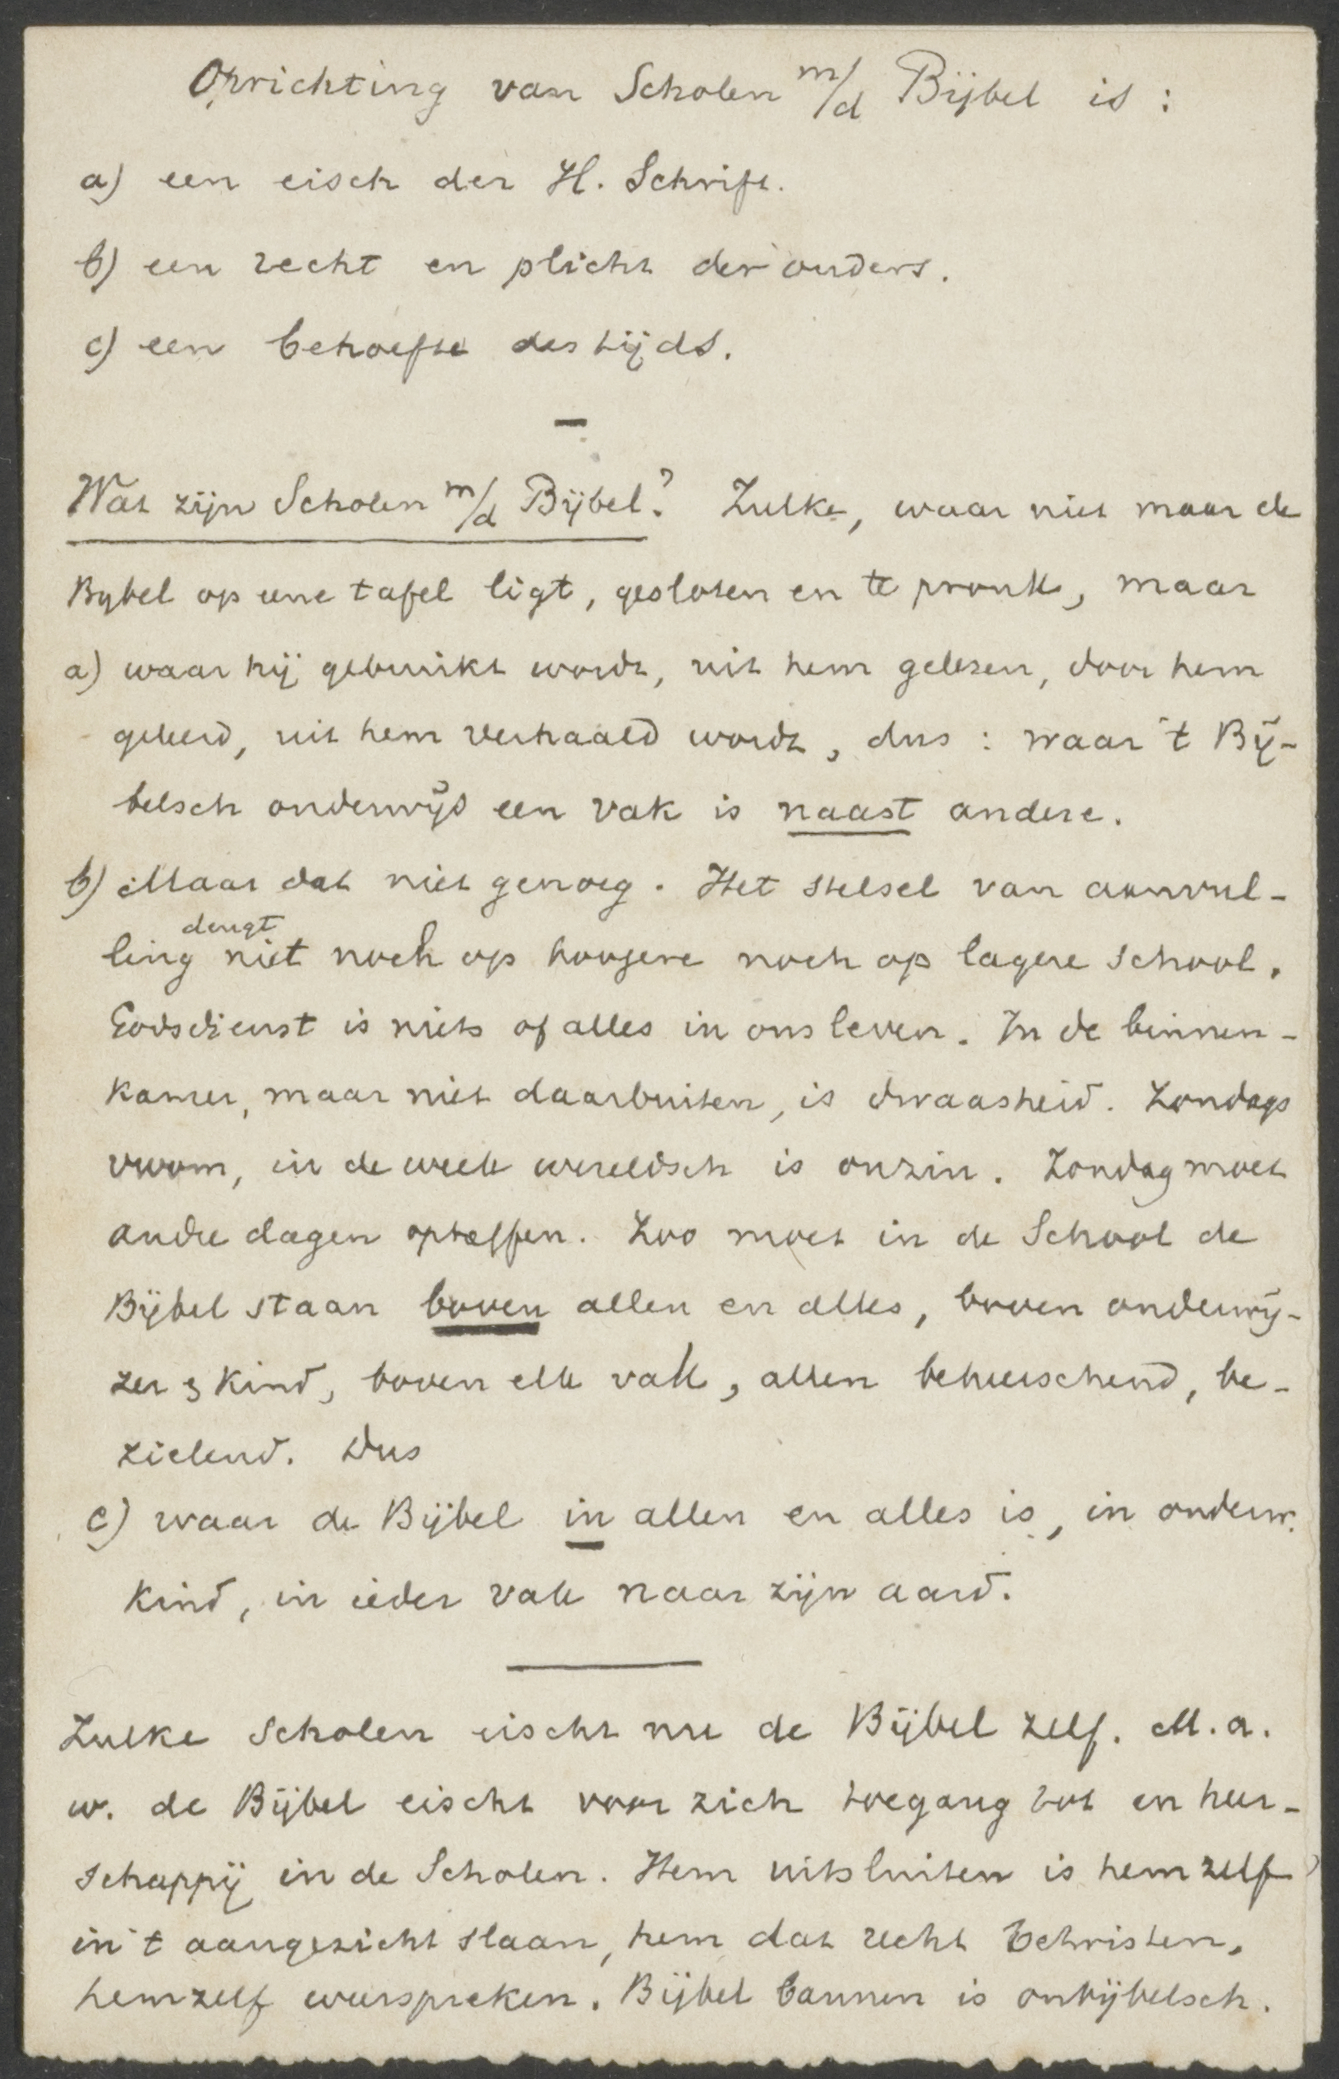 Oprichting van Scholen m/d Bijbel is :
a) een eisch der H. Schrift.
b) een recht en plicht der ouders.
c) een behoefte des tijds.
Wat zijn Scholen m/d Bijbel? Zulke, waar niet maar de
Bybel op eene tafel ligt, gesloten en te pronk, maar
a) waar hij gebruikt wordt, uit hem gelezen, door hem
geleerd, uit hem verhaald wordt, dus : waar 't Bij-
belsch onderwijs een vak is naast andere.
b) Maar dat niet genoeg. Het stelsel van aanvul-
deugt
ling niet noch op hoogere noch op lagere school.
Godsdienst is niets of alles in ons leven. In de binnen-
kamer, maar niet daarbuiten, is dwaasheid. Zondags
vroom, in de week wereldsch is onzin. Zondag moet
andre dagen opheffen. Zoo moet in de School de
Bijbel staan boven allen en alles, boven onderwij-
zer & kind, boven elk vak, allen beheerschend, be-
zielend. Dus
c) waar de Bijbel in allen en alles is, in onderw.
kind, in ieder vak naar zijn aard.
Zulke Scholen eischt nu de Bijbel zelf. M.a.
w. de Bijbel eischt voor zich toegang tot en heer-
schappij in de Scholen. Hem uitsluiten is hem zelf
in 't aangezicht slaan, hem dat recht betwisten,
hemzelf weerspreken. Bijbel bannen is onbijbelsch.